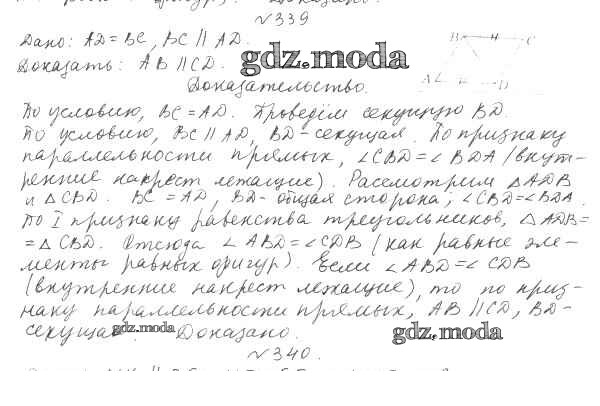 №339
Дано: AD = BC, BC || AD.
Доказать: AB || CD.
gdz.moda
Доказательство.
B C
A D
По условию, BC = AD. Проведём секущую BD.
По условию, BC || AD, BD - секущая. По признаку
параллельности прямых, ∠CBD = ∠BDA (внут-
ренние накрест лежащие). Рассмотрим △ADB
и △CBD. BC = AD, BD - общая сторона, ∠CBD = ∠BDA.
По I признаку равенства треугольников, △ADB =
= △CBD. Отсюда ∠ABD = ∠CDB (как равные эле-
менты равных фигур). Если ∠ABD = ∠CDB
(внутренние накрест лежащие), то по приз-
наку параллельности прямых, AB || CD, BD -
секущая. Доказано.
gdz.moda gdz.moda
№340.